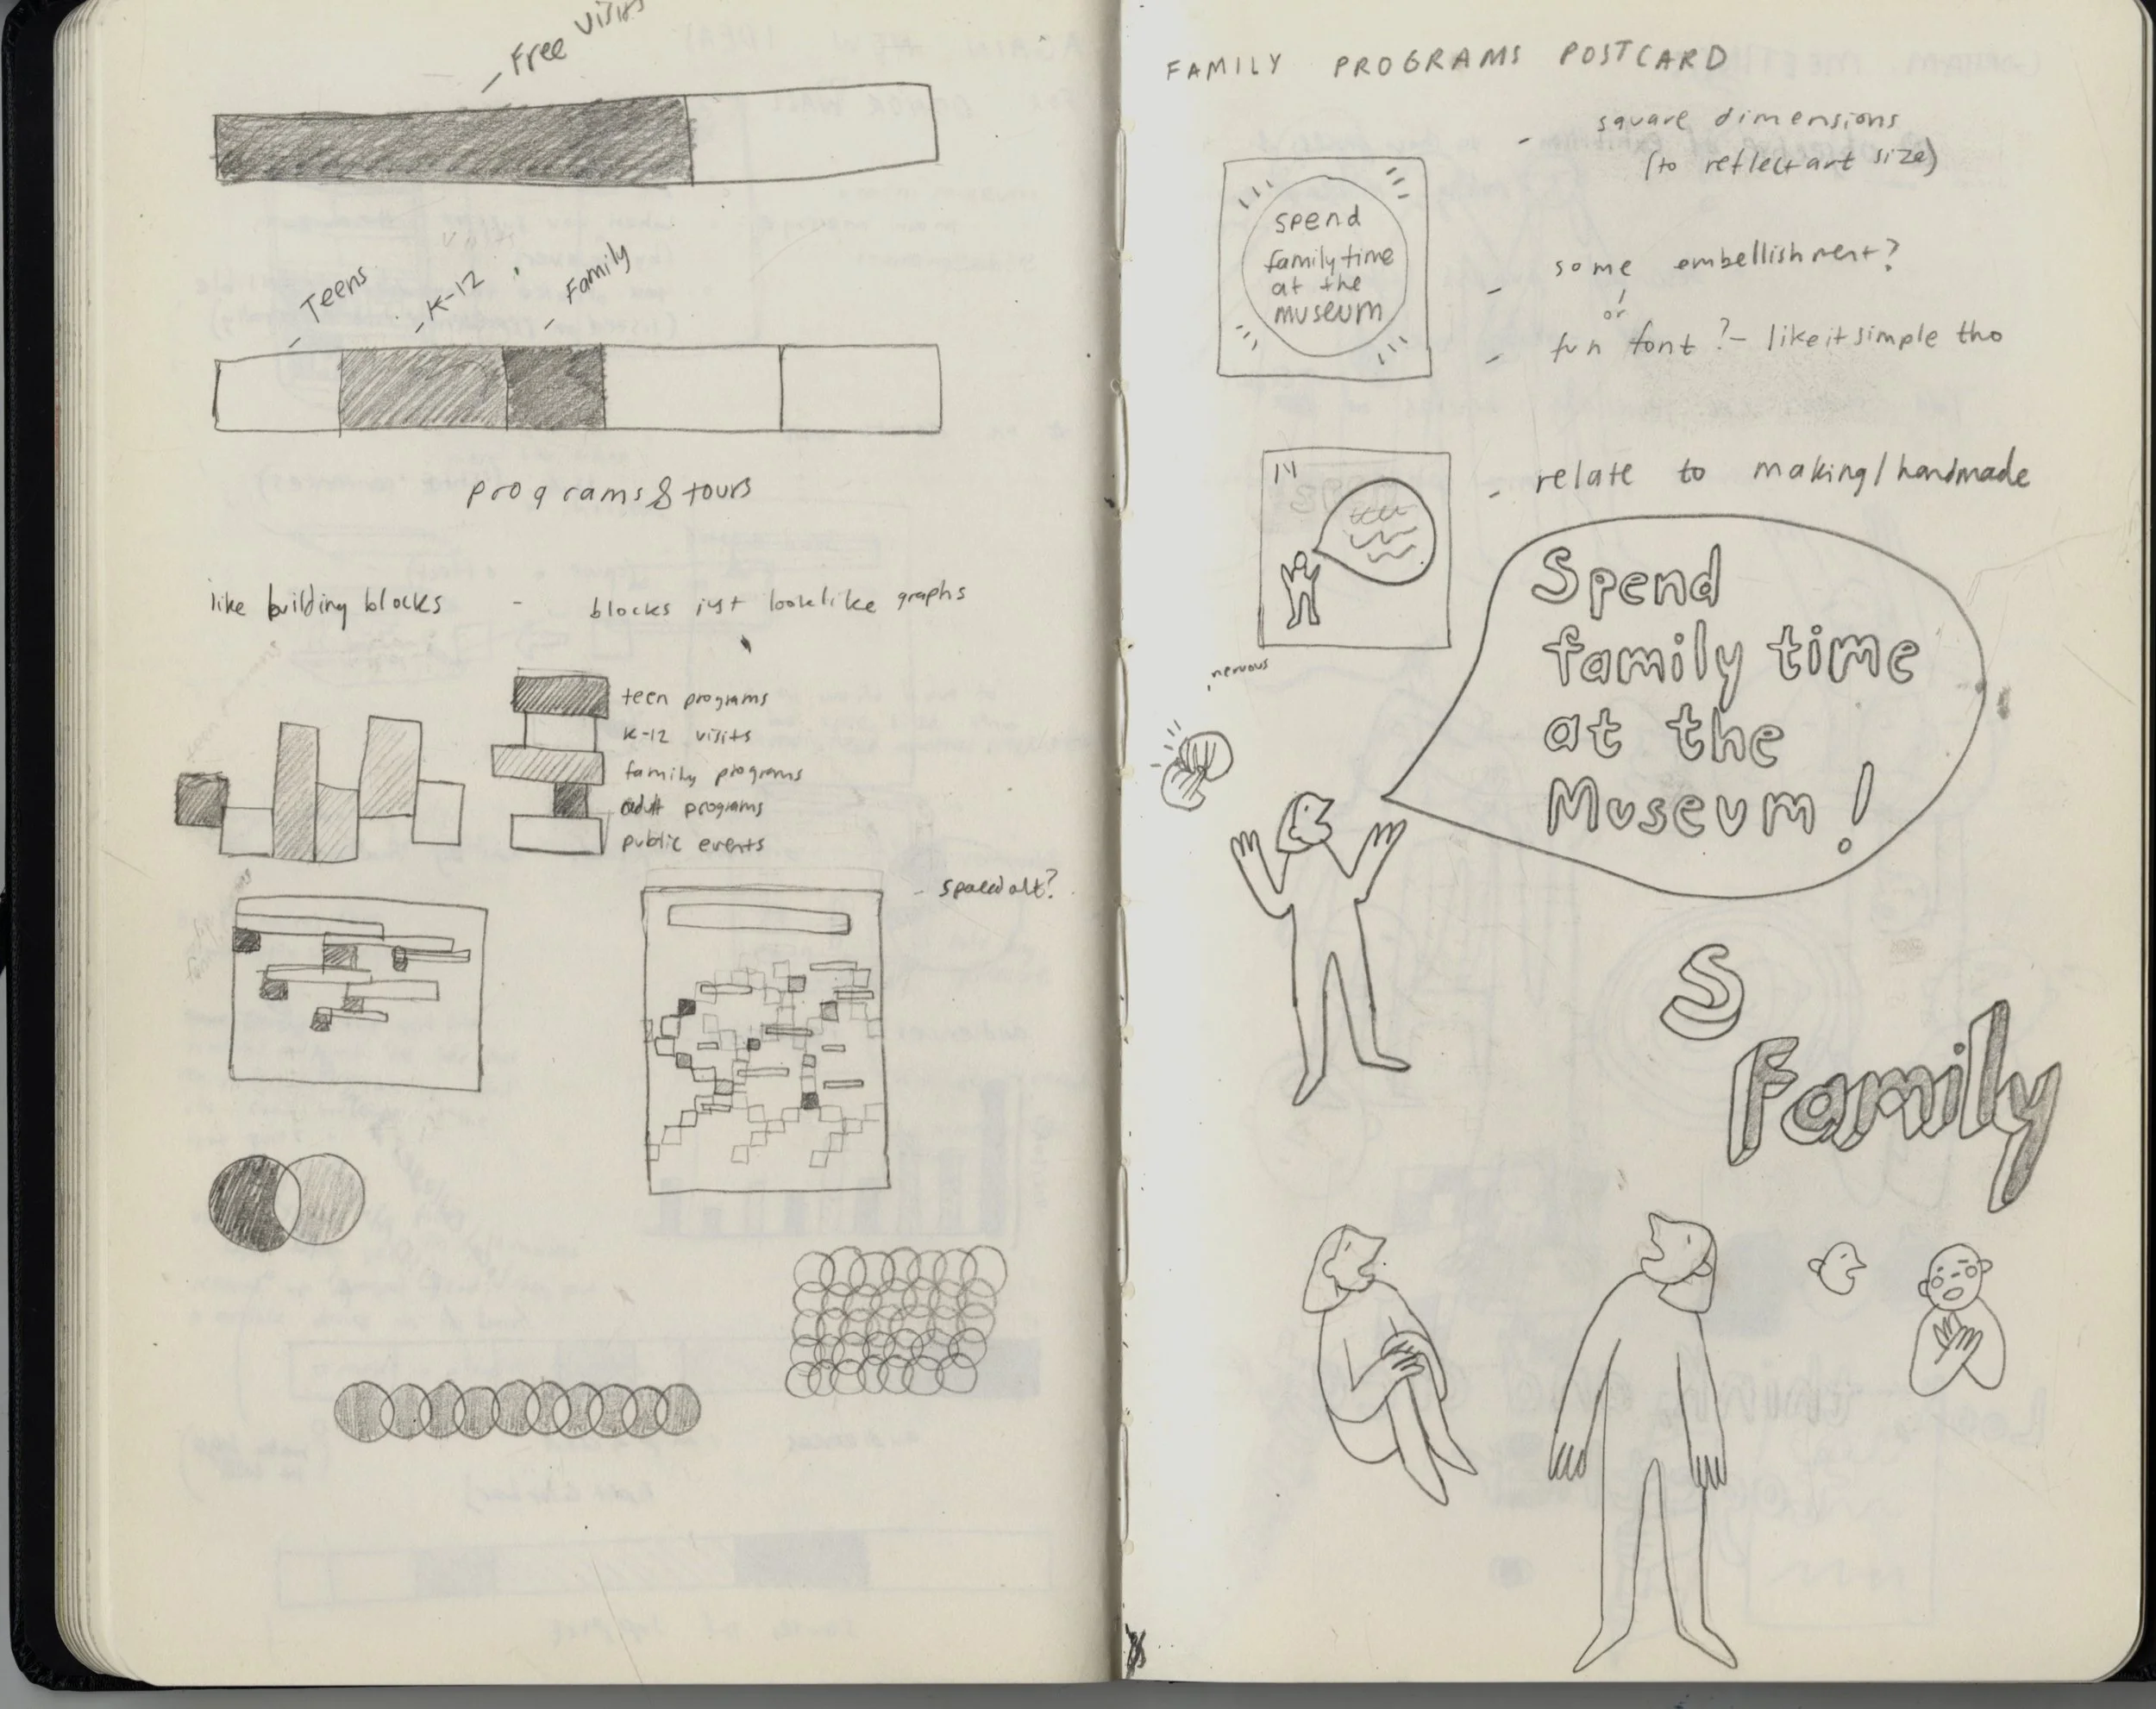 Free visits
Teens
K-12 visits
Family
programs & tours
like building blocks - blocks just look like graphs
teen programs
K-12 visits
family programs
adult programs
public events
- spaced out?
FAMILY PROGRAMS POSTCARD
- square dimensions
(to reflect art size)
spend
family time
at the
museum
- some embellishment?
or
- fun font? - like it simple tho
- relate to making/handmade
Spend
family time
at the
Museum!
nervous
S
Family